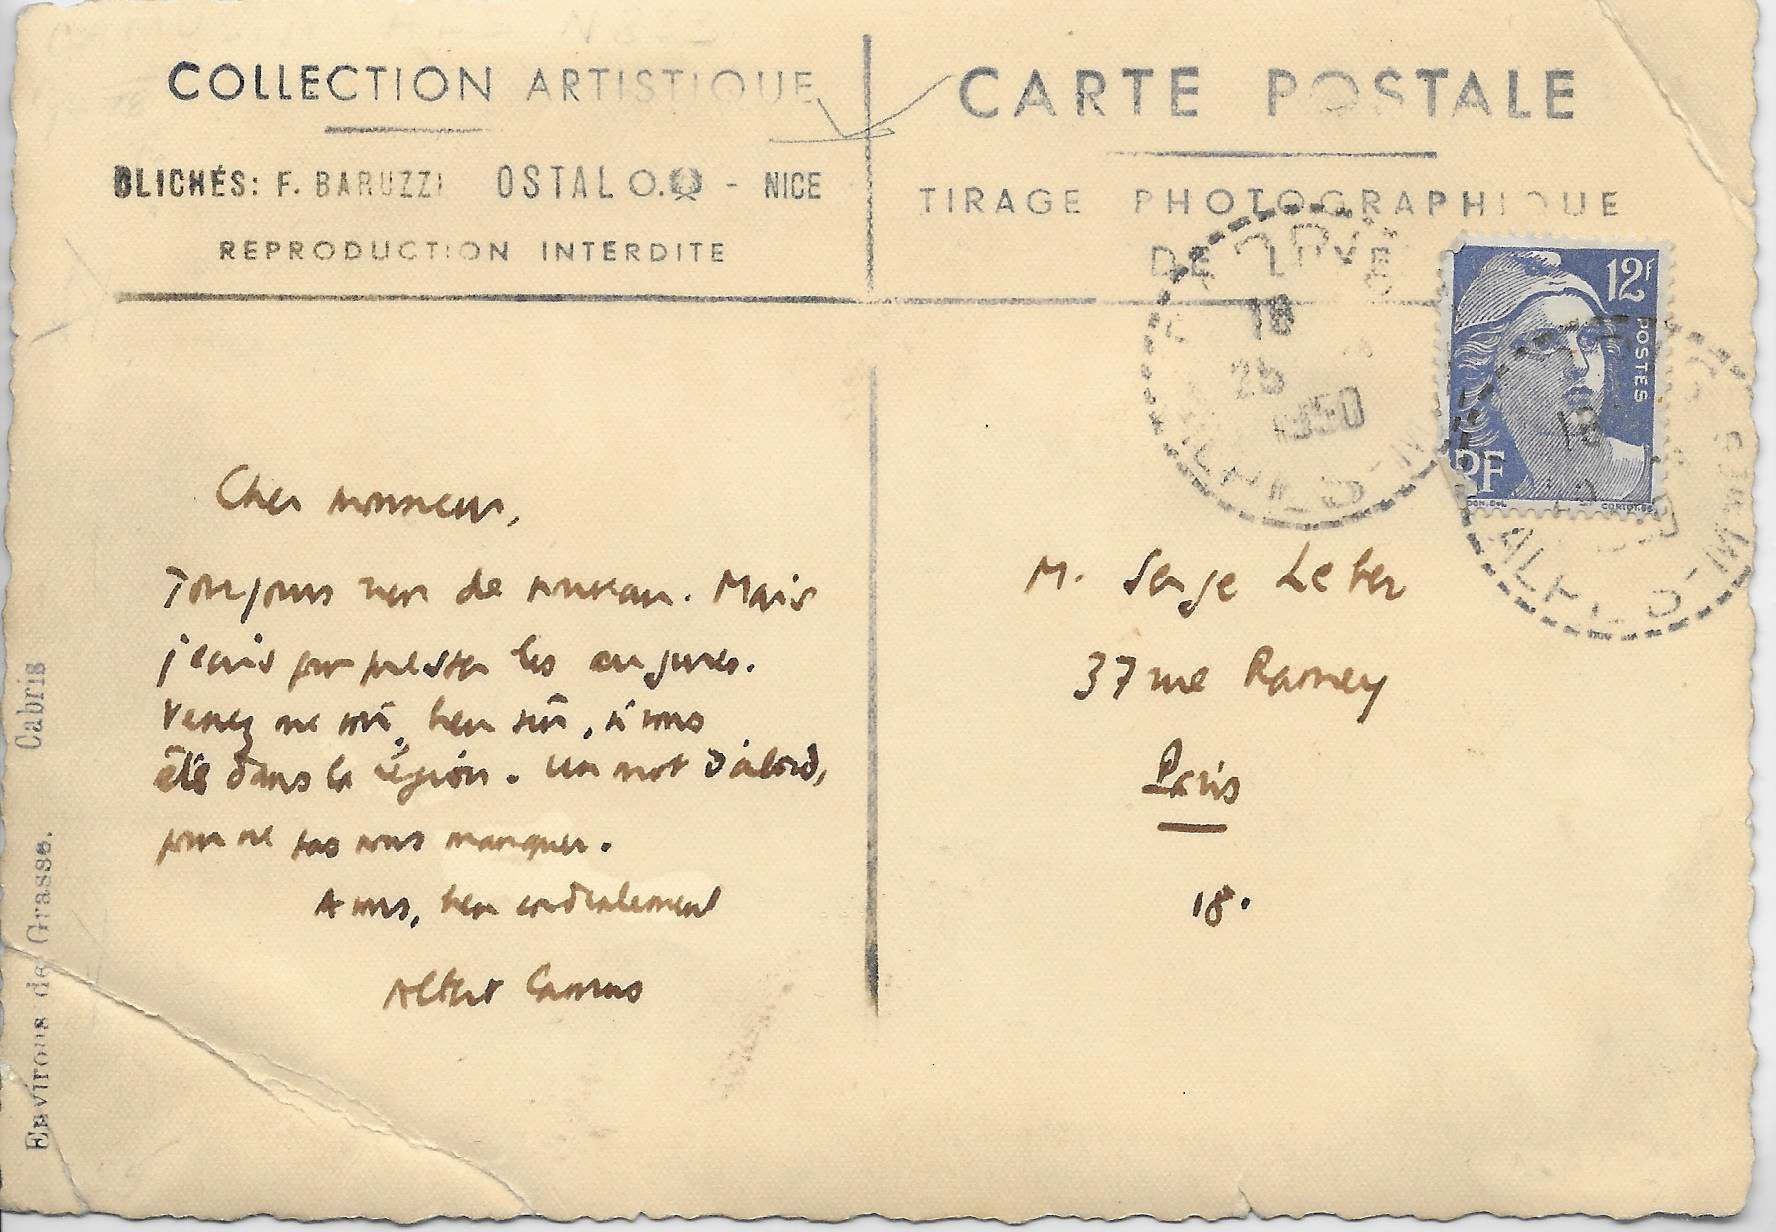 COLLECTION ARTISTIQUE
CLICHÉS: F. BARUZZI OSTAL O. - NICE
REPRODUCTION INTERDITE
CARTE POSTALE
TIRAGE PHOTOGRAPHIQUE
DE LUXE
12F
POSTES
RF
18
25
1950
ALPES-M
18
ALPES-MMES
Cher monsieur,
Toujours rien de nouveau. Mais
j'écris pour presser les augures.
Venez me voir, bien sûr, si vous
êtes dans la région. Un mot d'abord,
pour ne pas nous manquer.
A vous, bien cordialement
Albert Camus
M. Serge
37 rue Ramey
Paris
18.
Environs de Grasse. Cabris